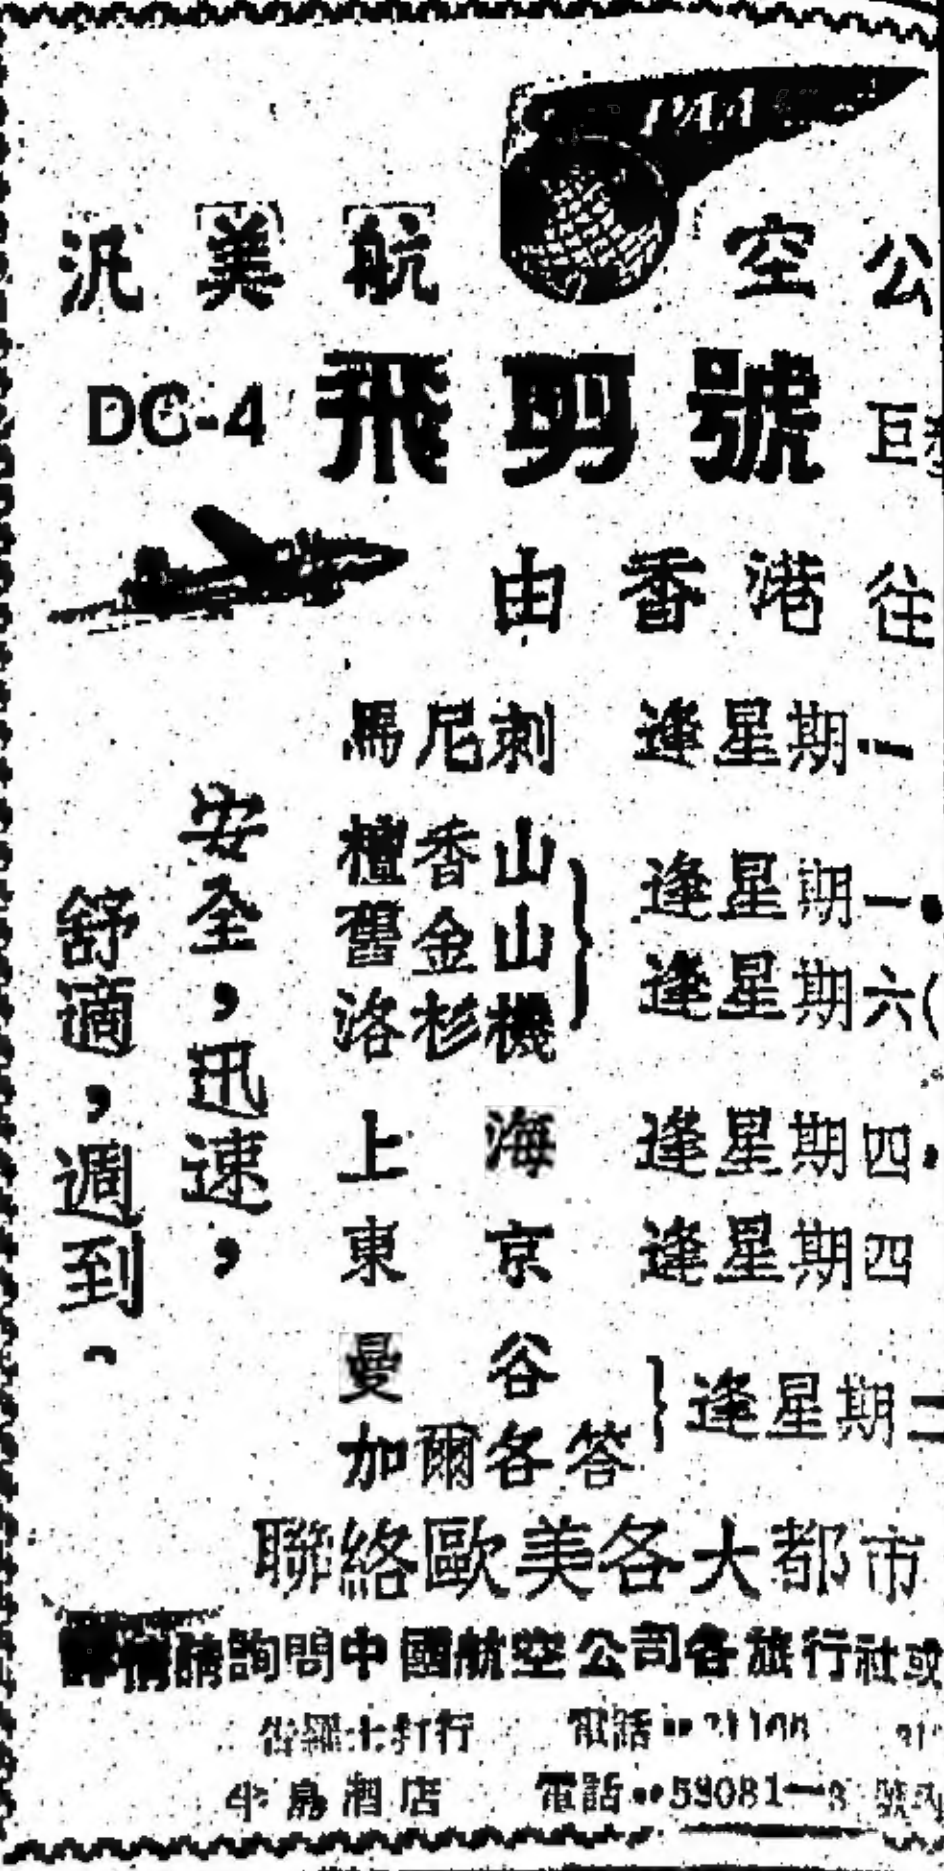 PAA
汎美航空公
DC-4 飛剪號 巨型
由香港往
馬尼刺 逢星期一
檀香山
舊金山
洛杉機
逢星期一
逢星期六(
上海 逢星期四
東京 逢星期四
曼谷
加爾各答
逢星期二
安全,迅速,
舒適,週到。
聯絡歐美各大都市
詳情請詢問中國航空公司各旅行社或
打行 電話
半島酒店 電話:59081一8 號